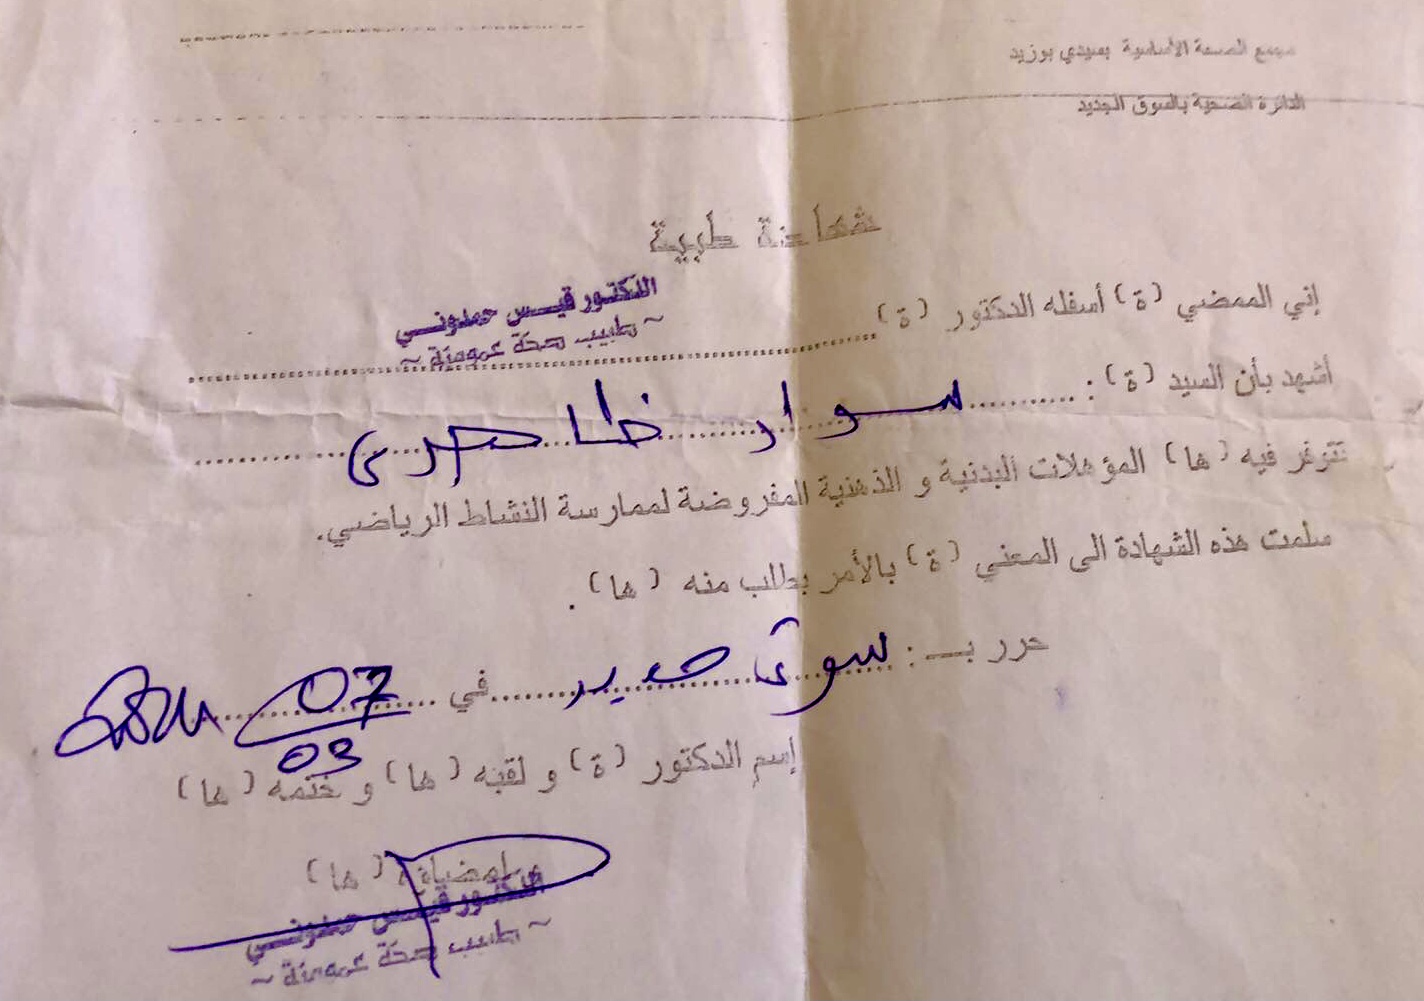 مجمع الصحة الأساسية بسيدي بوزيد
الدائرة الصحية بالسوق الجديد
شهادة طبية
إني الممضي (ة) أسفله الدكتور (ة)
الدكتور قيس حمدوني
~ طبيب صحة عمومية ~
أشهد بأن السيد (ة) : سوار ظاهري
تتوفر فيه (ها) المؤهلات البدنية و الذهنية المفروضة لممارسة النشاط الرياضي.
سلمت هذه الشهادة الى المعني (ة) بالأمر بطلب منه (ها) .
حرر بـ : سوق في 07
03
إسم الدكتور (ة) و لقبه (ها) و ختمه (ها)
و إمضياة (ها)
الدكتور قيس حمدوني
~ طبيب صحة عمومية ~